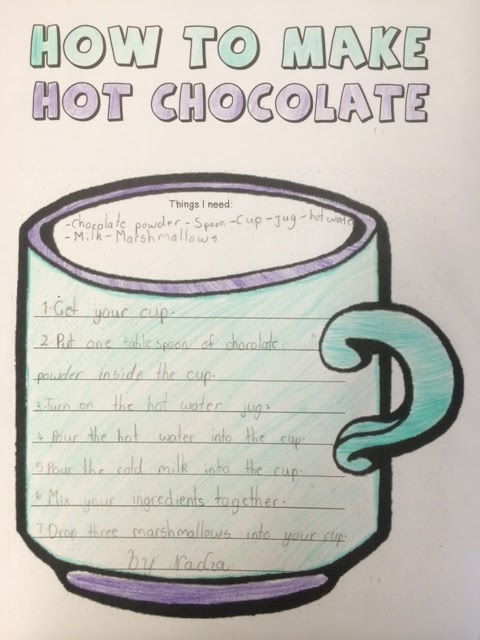 HOW TO MAKE
HOT CHOCOLATE
Things I need:
-Chocolate powder - Spoon - Cup - Jug - hot water
- Milk - Marshmallows
1. Get your cup.
2. Put one tablespoon of chocolate
powder inside the cup.
3. Turn on the hot water jug.
4. Pour the hot water into the cup.
5. Pour the cold milk into the cup.
6. Mix your ingredients together.
7. Drop three marshmallows into your cup.
by Nadia